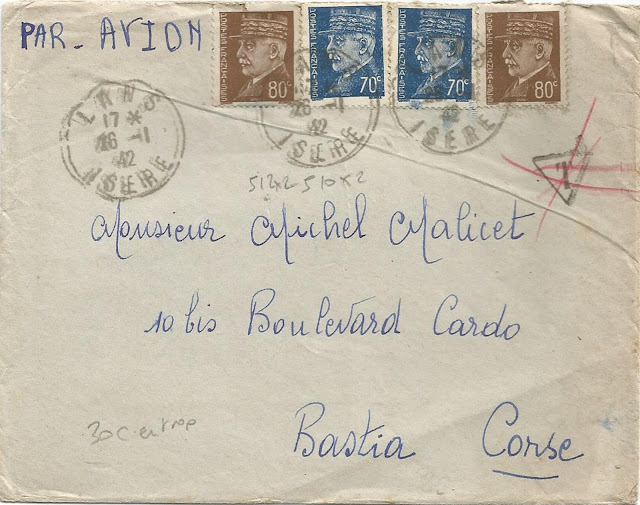 PAR - AVION
POSTES FRANÇAISES 80c
POSTES FRANÇAISES 70c
POSTES FRANÇAISES 70c
POSTES FRANÇAISES 80c
LANS
17 *
26 -1
42
ISERE
26 -1
42
ISERE
42
ISERE
T
512x2 510x2
Monsieur Michel Malicet
10 bis Boulevard Cardo
30c en trop
Bastia Corse